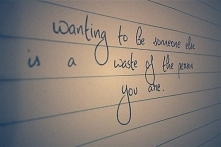 wanting to be someone else
is a waste of the person
you are.